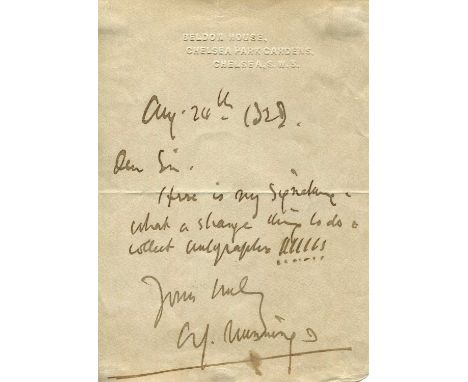 BELDON HOUSE,
CHELSEA PARK GARDENS,
CHELSEA, S.W.3.
Aug. 24th 1928.
Dear Sir.
Here is my Signature.
what a strange thing to do.
collect autographs !!!!!!
Yours truly
A.J. Munnings